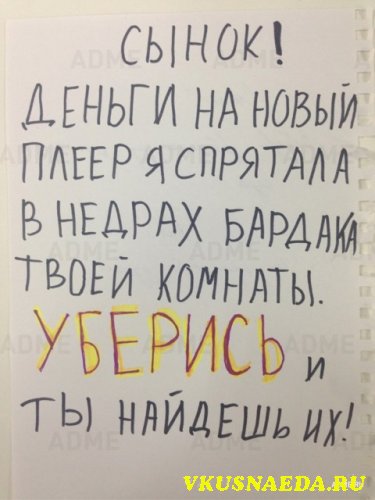 СЫНОК!
ДЕНЬГИ НА НОВЫЙ
ПЛЕЕР Я СПРЯТАЛА
В НЕДРАХ БАРДАКА
ТВОЕЙ КОМНАТЫ.
УБЕРИСЬ И
ТЫ НАЙДЕШЬ ИХ!
VKUSNAEDA.RU
ADME
ADME
ADME
ADME
ADME